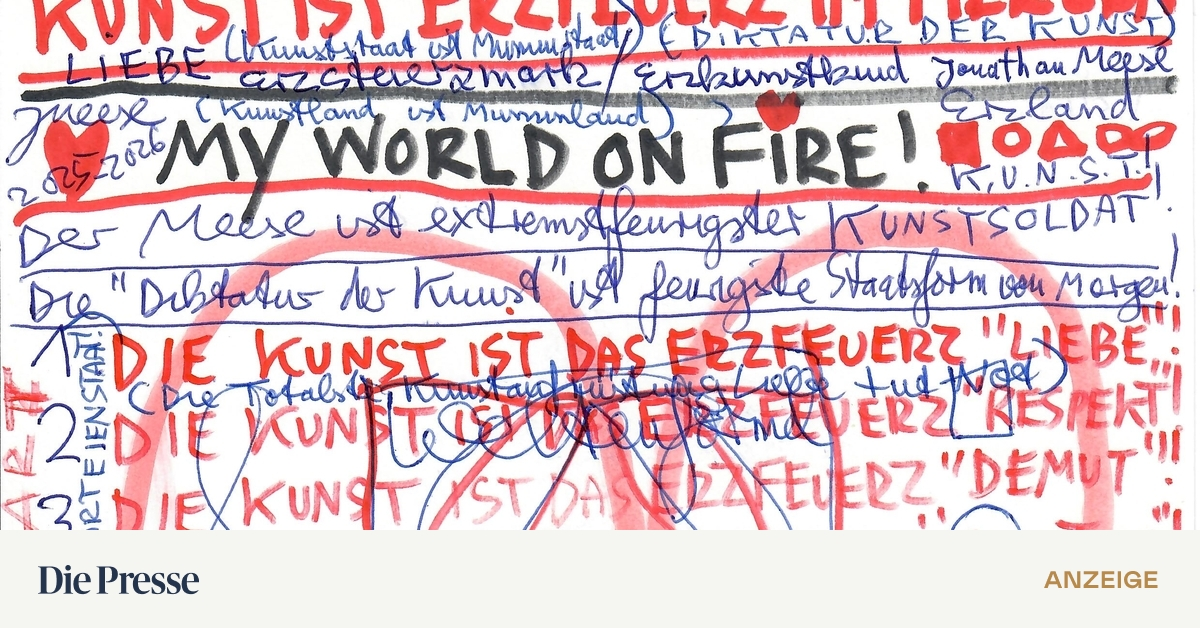 KUNST IST ERZFEUERZ IM
(Kunststaat ist Muminstaat) (DIKTATUR DER KUNST)
LIEBE Erzsteuerzmark / Erzkunstkund Jonathan Meese
JMeese (Kunstland ist Muminland) Erzland
2025-2026
MY WORLD ON FIRE!
K.U.N.S.T.!
Der Meese ist extremstfeurigster KUNSTSOLDAT!
Die "Diktatur der Kunst" ist feurigste Staatsform von Morgen!
1 DIE KUNST IST DAS ERZFEUERZ "LIEBE"!
(Die Totalste Kunst tut Not)
2 DIE KUNST IST DAS ERZFEUERZ "RESPEKT"!
3 DIE KUNST IST DAS ERZFEUERZ "DEMUT"!
Die Presse
ANZEIGE